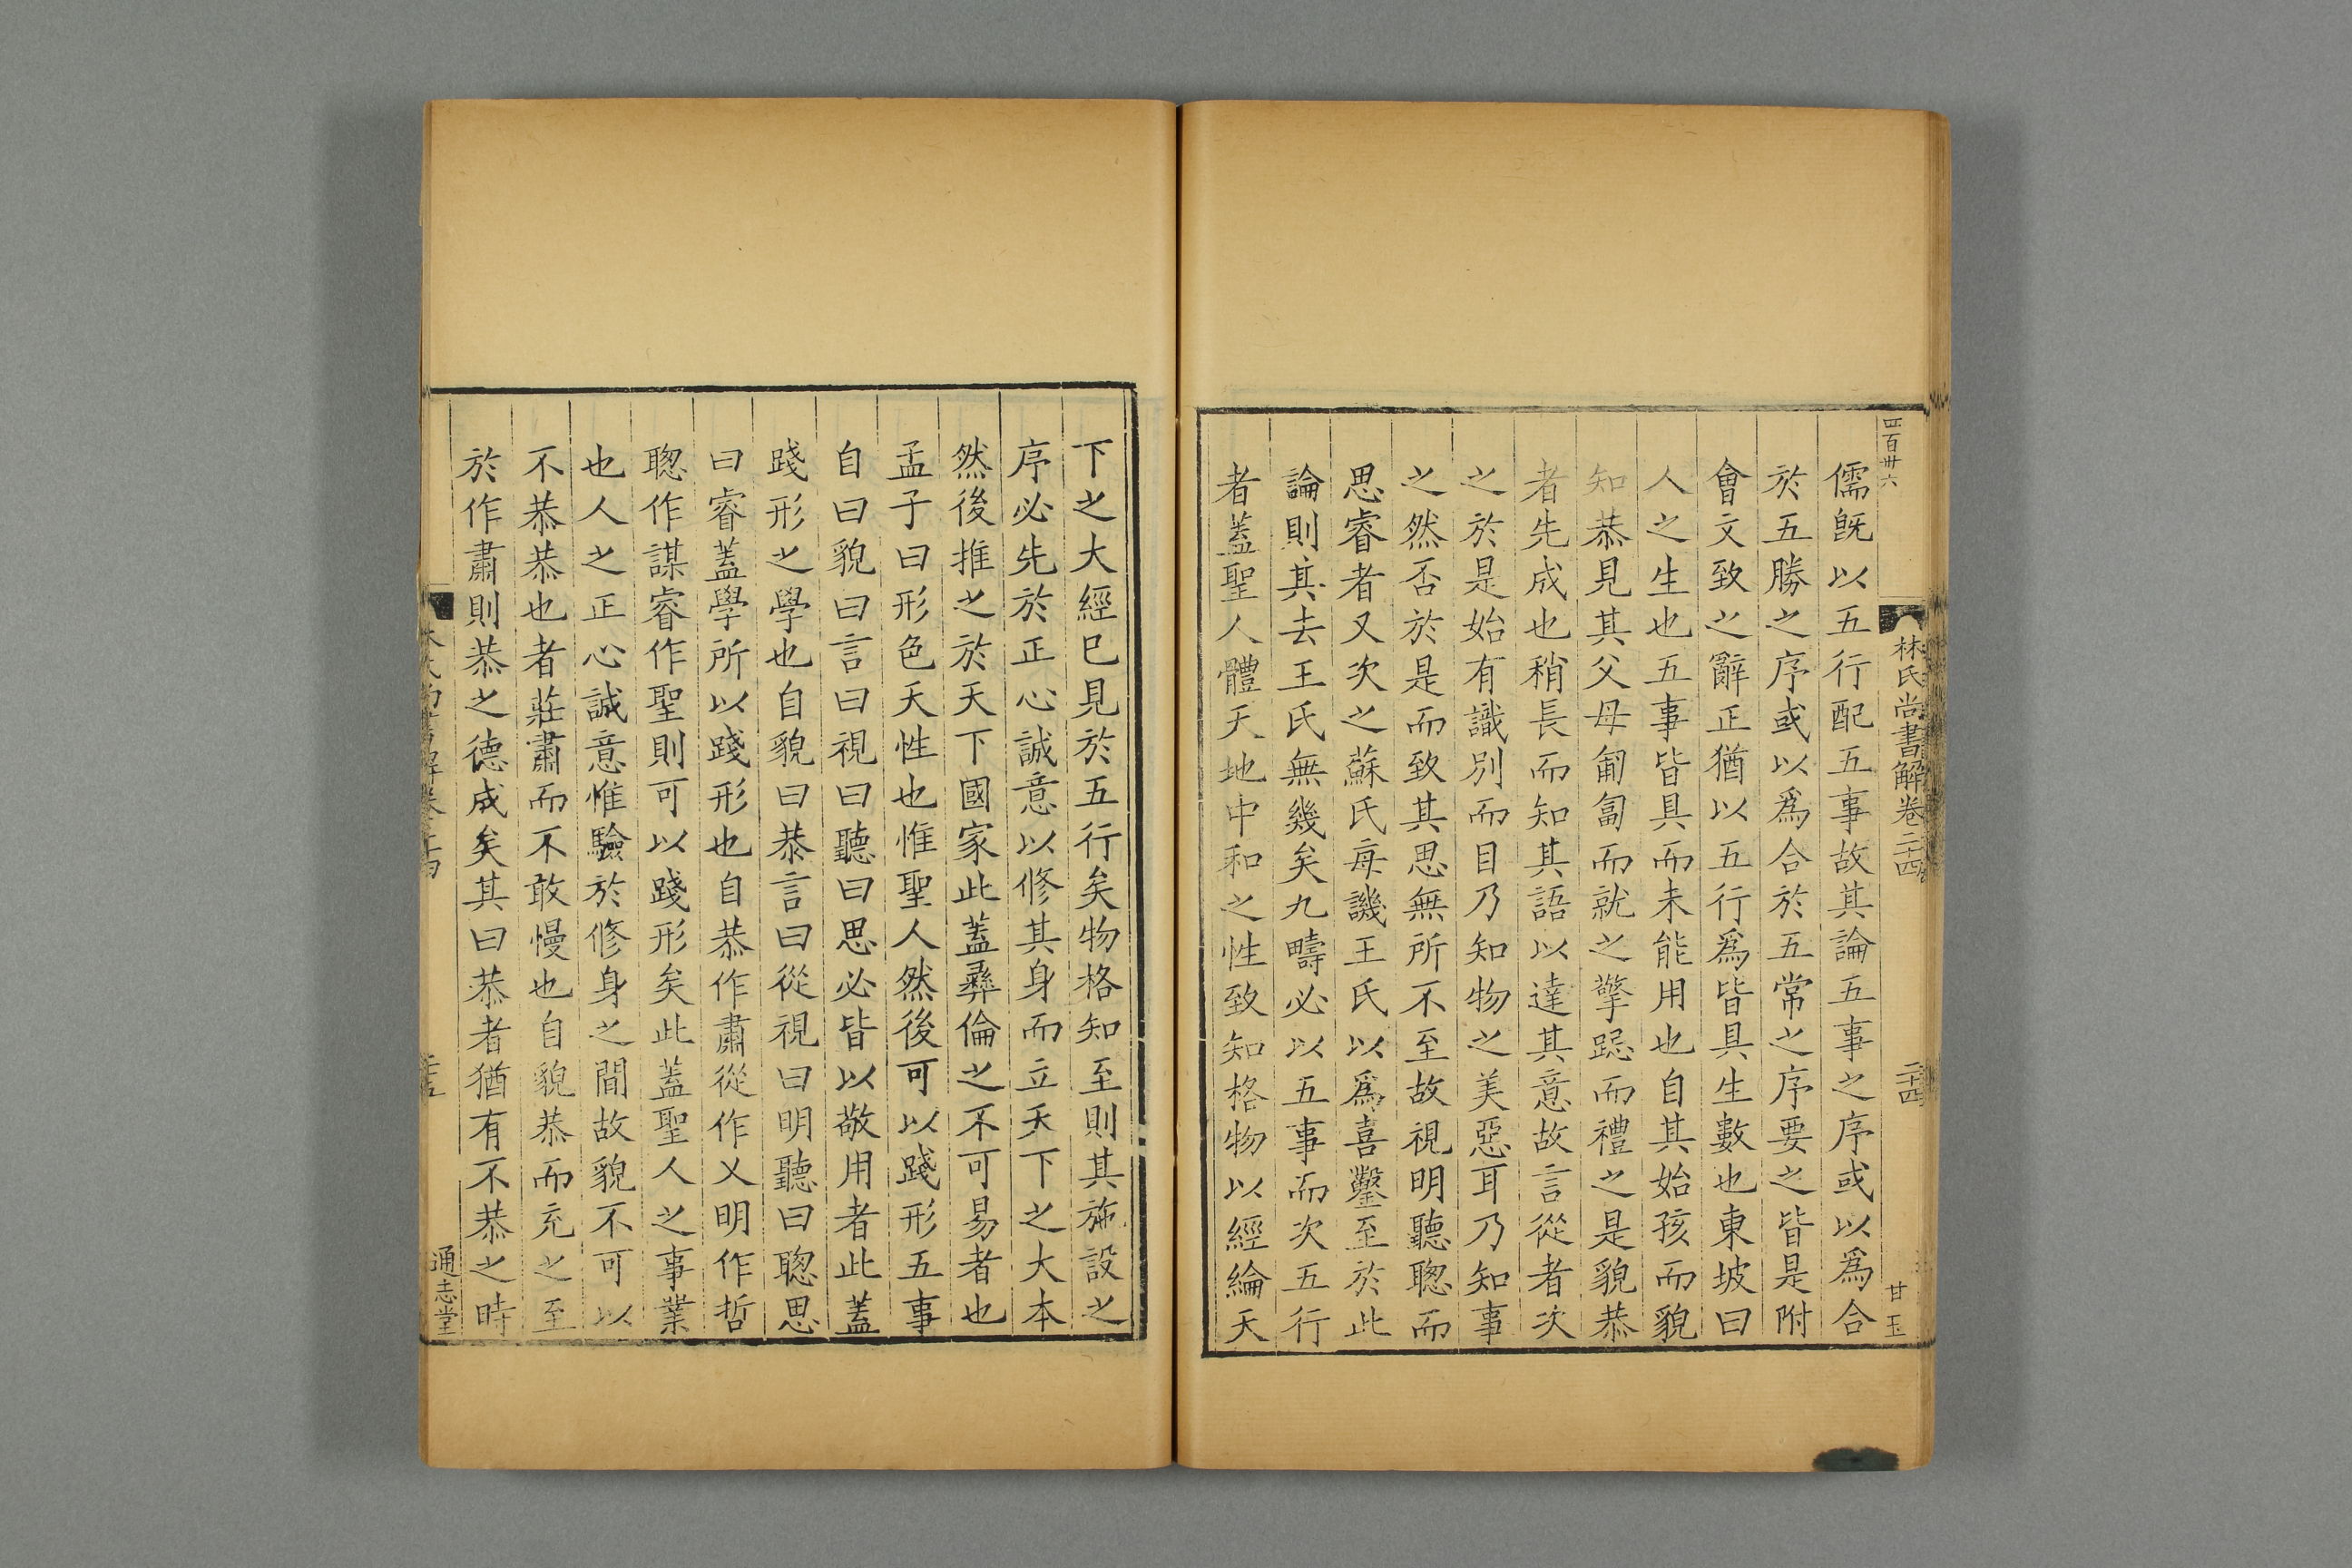 四百卅六
林氏尚書解卷二十四
二十四
甘玉
儒旣以五行配五事故其論五事之序或以爲合
於五勝之序或以爲合於五常之序要之皆是附
會文致之辭正猶以五行爲皆具生數也東坡曰
人之生也五事皆具而未能用也自其始孩而貌
知恭見其父母匍匐而就之擎跽而禮之是貌恭
者先成也稍長而知其語以達其意故言從者次
之於是始有識別而目乃知物之美惡耳乃知事
之然否於是而致其思無所不至故視明聽聰而
思睿者又次之蘇氏毎譏王氏以爲喜鑿至於此
論則其去王氏無幾矣九疇必以五事而次五行
者蓋聖人體天地中和之性致知格物以經綸天
下之大經已見於五行矣物格知至則其施設之
序必先於正心誠意以修其身而立天下之大本
然後推之於天下國家此蓋彝倫之不可易者也
孟子曰形色天性也惟聖人然後可以踐形五事
自曰貌曰言曰視曰聽曰思必皆以敬用者此蓋
踐形之學也自貌曰恭言曰從視曰明聽曰聰思
曰睿蓋學所以踐形也自恭作肅從作乂明作哲
聰作謀睿作聖則可以踐形矣此蓋聖人之事業
也人之正心誠意惟驗於修身之間故貌不可以
不恭恭也者莊肅而不敢慢也自貌恭而充之至
於作肅則恭之德成矣其曰恭者猶有不恭之時
二十五
通志堂